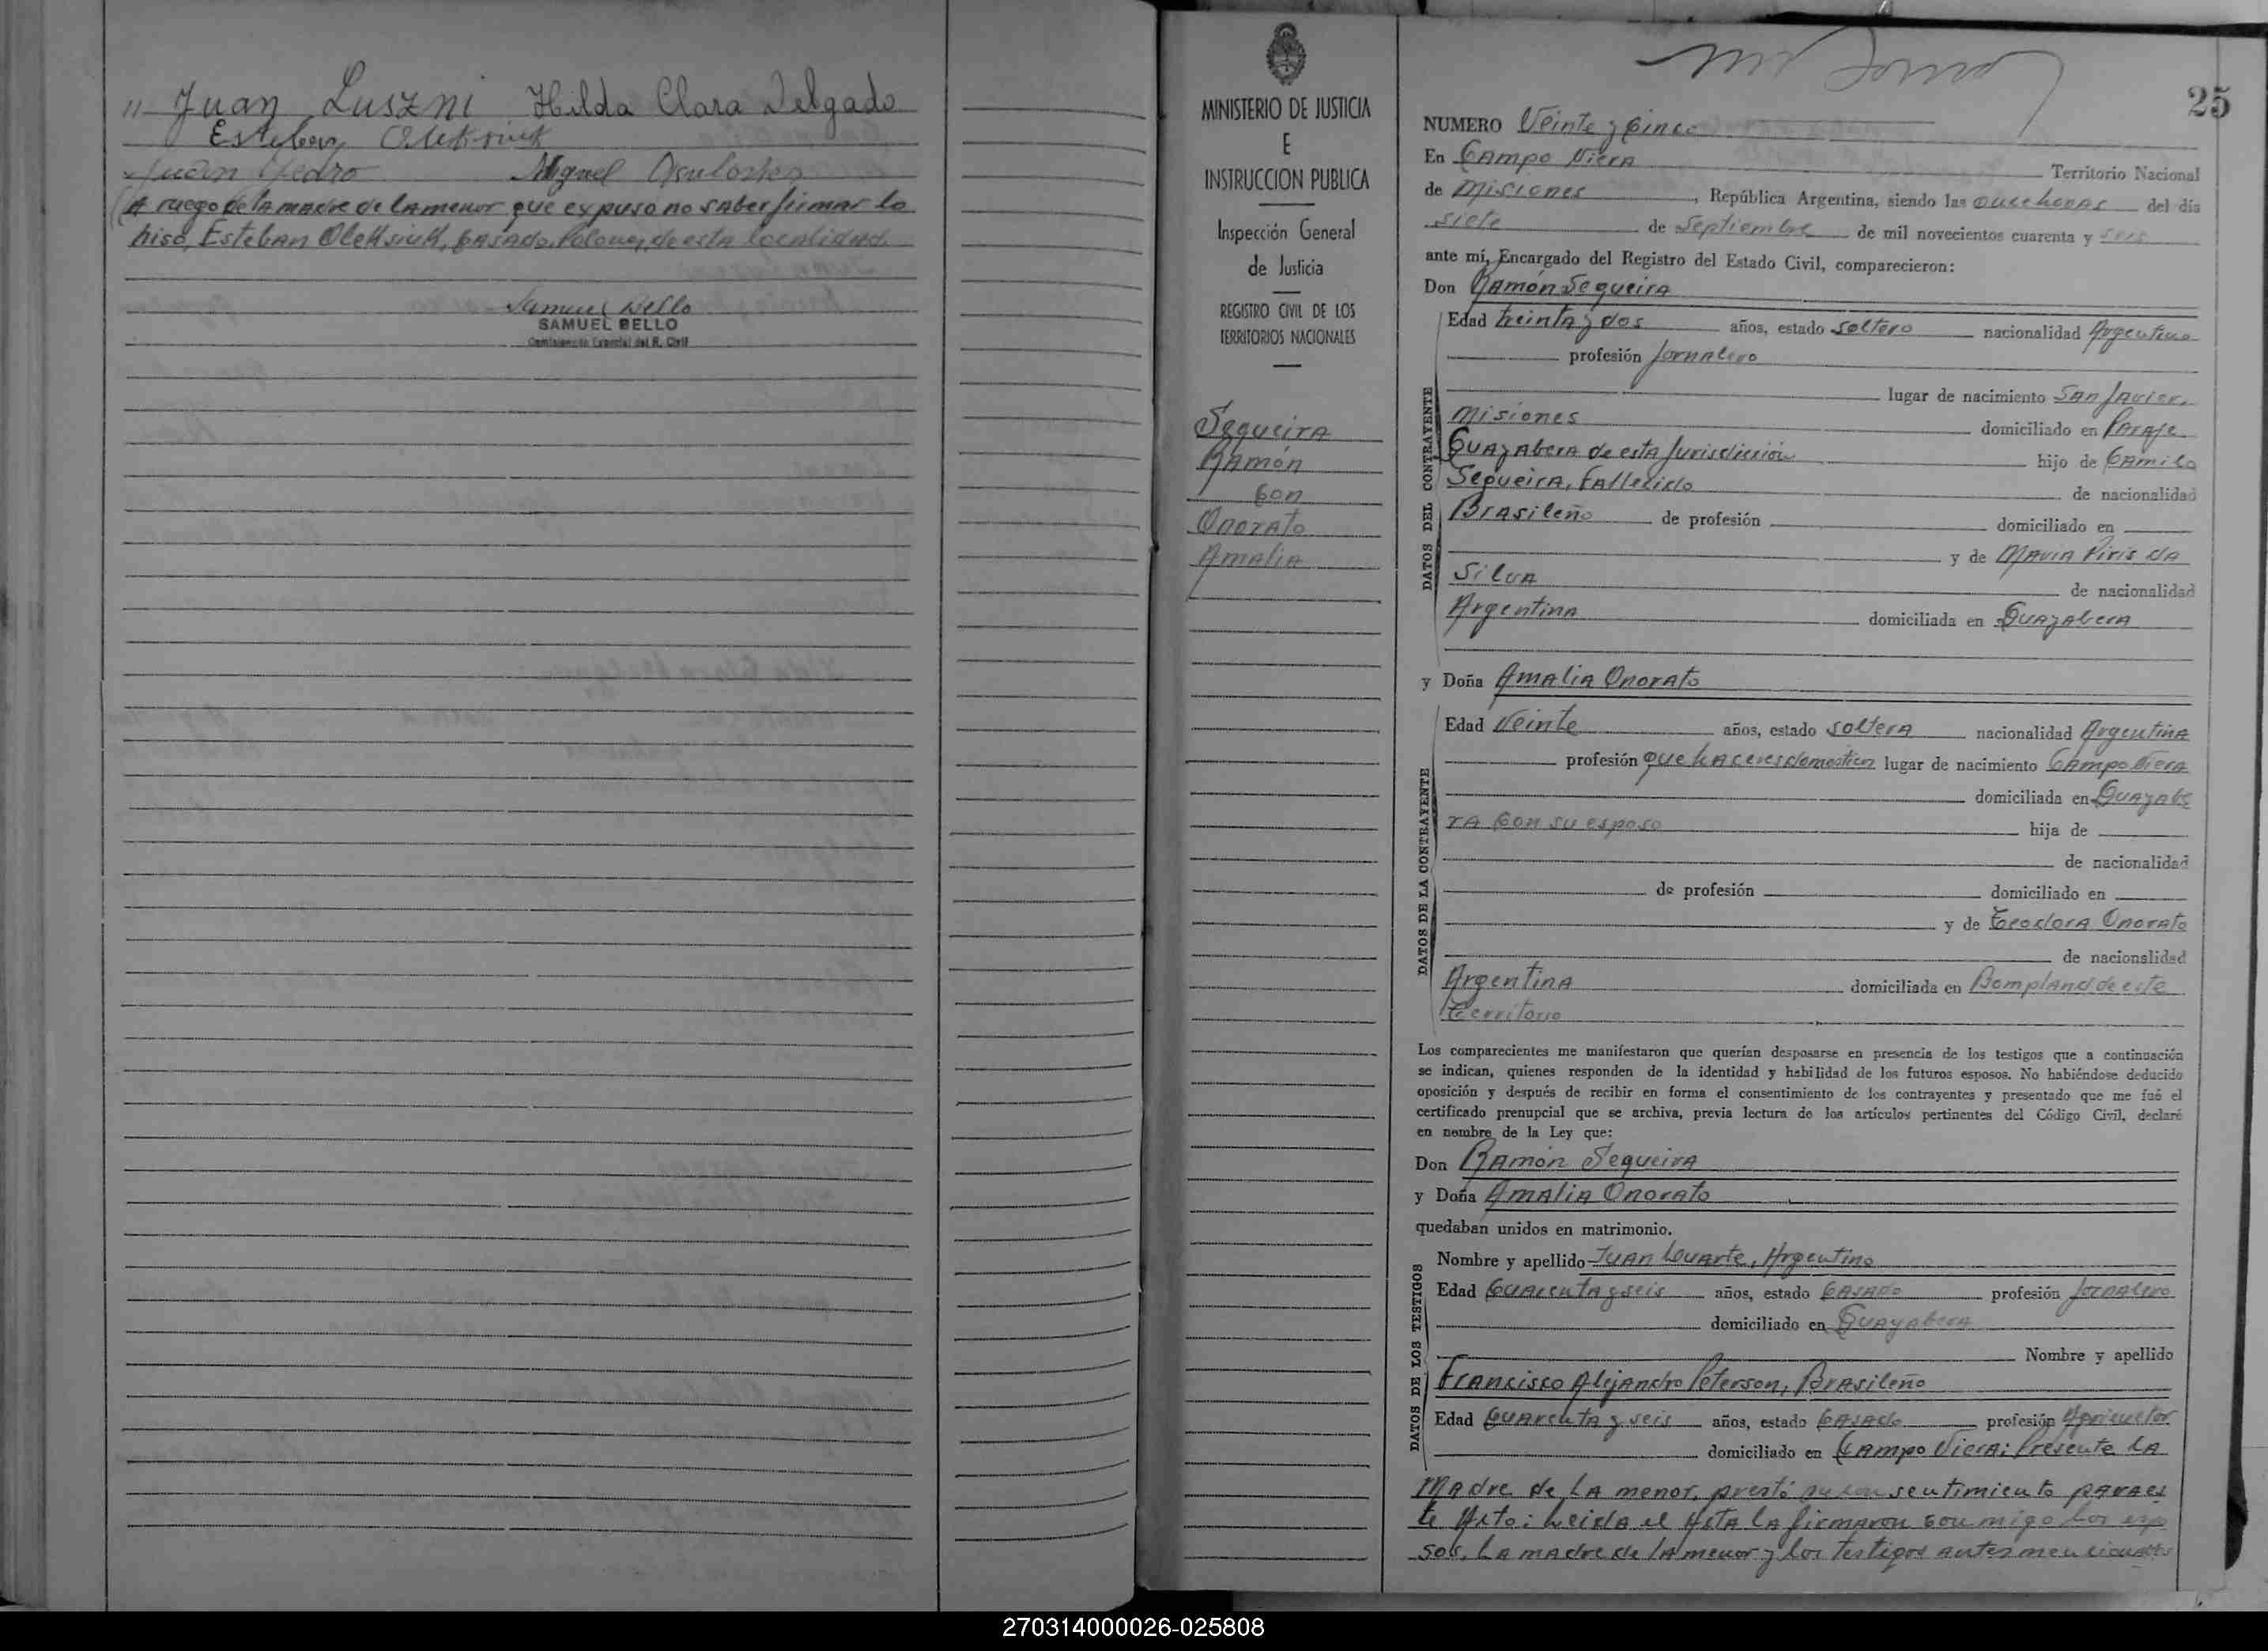 11 Juan Luszni Hilda Clara Delgado
Esteban Oleksiuk
Juan Pedro Miguel
A ruego de la madre de la menor que expuso no saber firmar lo
hiso, Esteban Oleksiuk, casado, Polones, de esta localidad.
Samuel Bello
SAMUEL BELLO
Comisionado Especial del R. Civil
MINISTERIO DE JUSTICIA
E
INSTRUCCION PUBLICA
Inspección General
de Justicia
REGISTRO CIVIL DE LOS
TERRITORIOS NACIONALES
Sequeira
Ramón
con
Onorato
Amalia
25
NUMERO Veinte y Cinco
En Campo Viera Territorio Nacional
de Misiones, República Argentina, siendo las once horas del día
siete de Septiembre de mil novecientos cuarenta y seis
ante mí, Encargado del Registro del Estado Civil, comparecieron:
Don Ramón Sequeira
DATOS DEL CONTRAYENTE
Edad treinta y dos años, estado soltero nacionalidad Argentino
profesión Jornalero
lugar de nacimiento San Javier,
Misiones domiciliado en Paraje
Guayabera de esta Jurisdicción hijo de Camilo
Sequeira, Fallecido de nacionalidad
Brasileño de profesión domiciliado en
y de Maria Piris da
Silva de nacionalidad
Argentina domiciliada en Guayabera
y Doña Amalia Onorato
DATOS DE LA CONTRAYENTE
Edad Veinte años, estado soltera nacionalidad Argentina
profesión quehaceres domestico lugar de nacimiento Campo Viera
domiciliada en Guayabe
ra con su esposo hija de
de nacionalidad
de profesión domiciliado en
y de Teodora Onorato
de nacionalidad
Argentina domiciliada en Bompland de este
Territorio
Los comparecientes me manifestaron que querían desposarse en presencia de los testigos que a continuación
se indican, quienes responden de la identidad y habilidad de los futuros esposos. No habiéndose deducido
oposición y después de recibir en forma el consentimiento de los contrayentes y presentado que me fué el
certificado prenupcial que se archiva, previa lectura de los artículos pertinentes del Código Civil, declaré
en nombre de la Ley que:
Don Ramón Sequeira
y Doña Amalia Onorato
quedaban unidos en matrimonio.
DATOS DE LOS TESTIGOS
Nombre y apellido Juan Duarte, Argentino
Edad Cuarenta y seis años, estado Casado profesión Jornalero
domiciliado en Guayabera
Nombre y apellido
Francisco Alejandro Peterson, Brasileño
Edad Cuarenta y seis años, estado Casado profesión Agricultor
domiciliado en Campo Viera; Presente la
Madre de la menor, prestó su consentimiento para es
te Acto: Leida el Acta la firmaron conmigo los espo
sos, la madre de la menor y los testigos antes mencionados
270314000026-025808